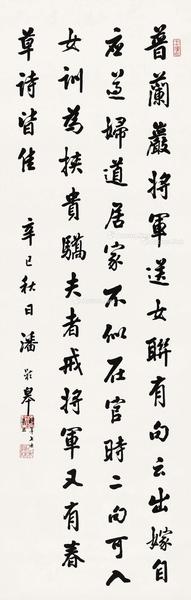 普蘭巖將軍送女聯有句云出嫁自
应遵婦道居家不似在官時二句可入
女訓為挾貴驕夫者戒將軍又有春
草詩皆佳 辛巳秋日潘齡皋